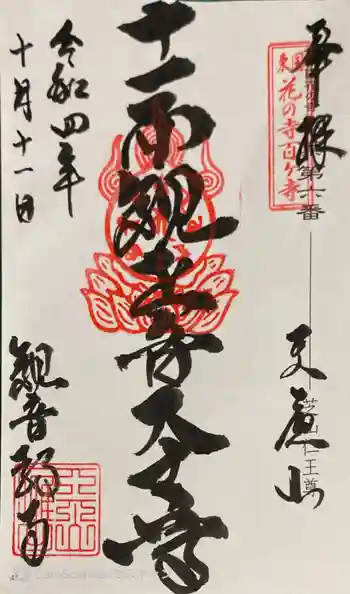 奉拝
東国花の寺百ヶ寺
第六番
芝山仁王尊
天應山
十一面観世音
令和四年
十月十一日
観音教寺